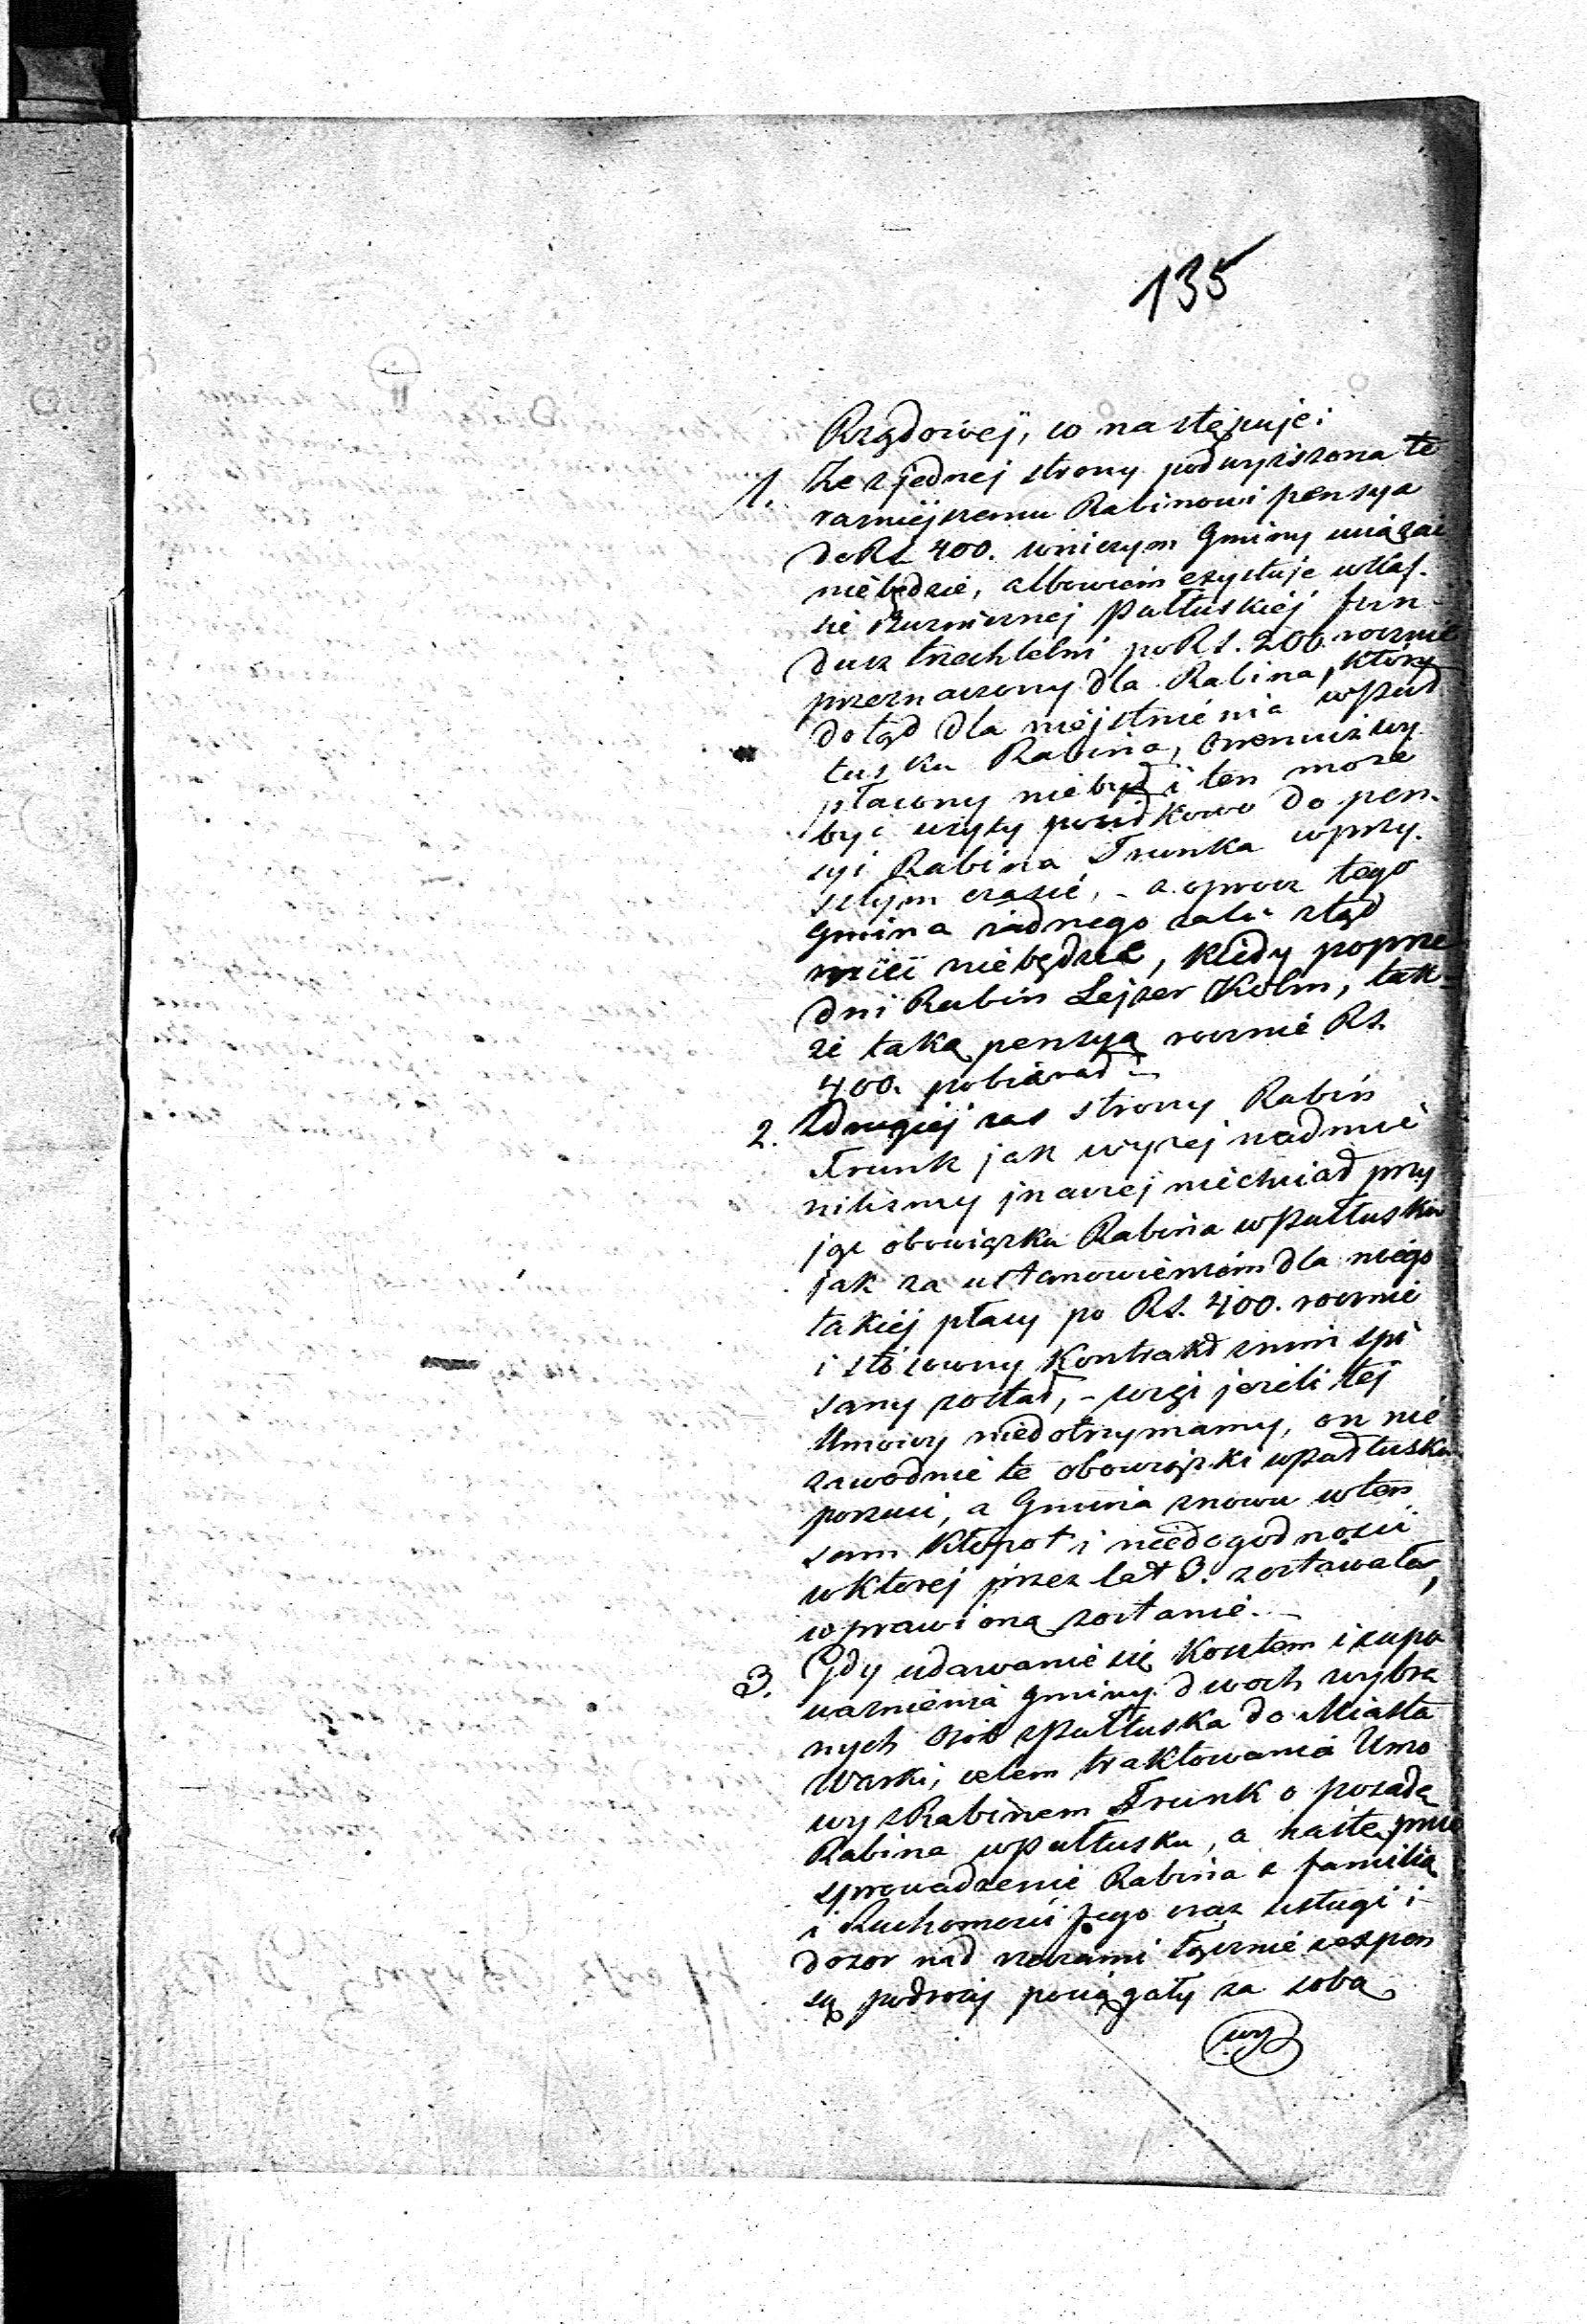 135
Rządowej, co następuje:
1. Że z jednej strony podwyższona te
raźniejszemu Rabinowi pensya
do Rs 400. wniczym Gminy uciążać
niebędzie, albowiem exystuje wKas-
sie Bużnicznej Pułtuskiej fun-
dusz trzechletni po Rs. 200. rocznie
przeznaczony dla Rabina, który
dotąd dla nieistnienia wPuł
tusku Rabina, wy
płacony niebył i ten może
być użyty do pen-
syi Rabina Trunka wprzy-
szłym czasie, - a oprocz tego
Gmina żadnego żalu ztąd
mieć niebędzie, kiedy poprze
dni Rabin Lejzer Kohn, tak-
że taką pensyą rocznie Rs.
400. pobierał. -
2. Zdrugiej zas strony Rabin
Trunk jak wyżej nadmie
niliśmy inaczej niechciał przy
jąć obowiązku Rabina wPułtusku
jak za ustanowieniem dla niego
takiej płacy po Rs. 400. rocznie
i stósowny Kontrakt znim spi
sany został, - jeżeli tej
Umowy niedotrzymamy, on nie
zawodnie te obowiązki wPułtusku
porzuci, a Gmina znowu wten
sam Kłopot i niedogodności
wktorej przez lat 3. zostawała,
wprawioną zostanie. -
3. Gdy udawanie się Kosztem i zupo
ważnienia Gminy dwoch wybra
nych osób zPułtuska do Miasta
Warki, celem traktowania Umo
wy zRabinem Trunk o posadę
Rabina wPułtusku, a następnie
sprowadzenie Rabina z familią
i Ruchomości Jego oraz usługi i
dozor nad rzeczami łącznie zexpen
są podroży pociągały za sobą
wy